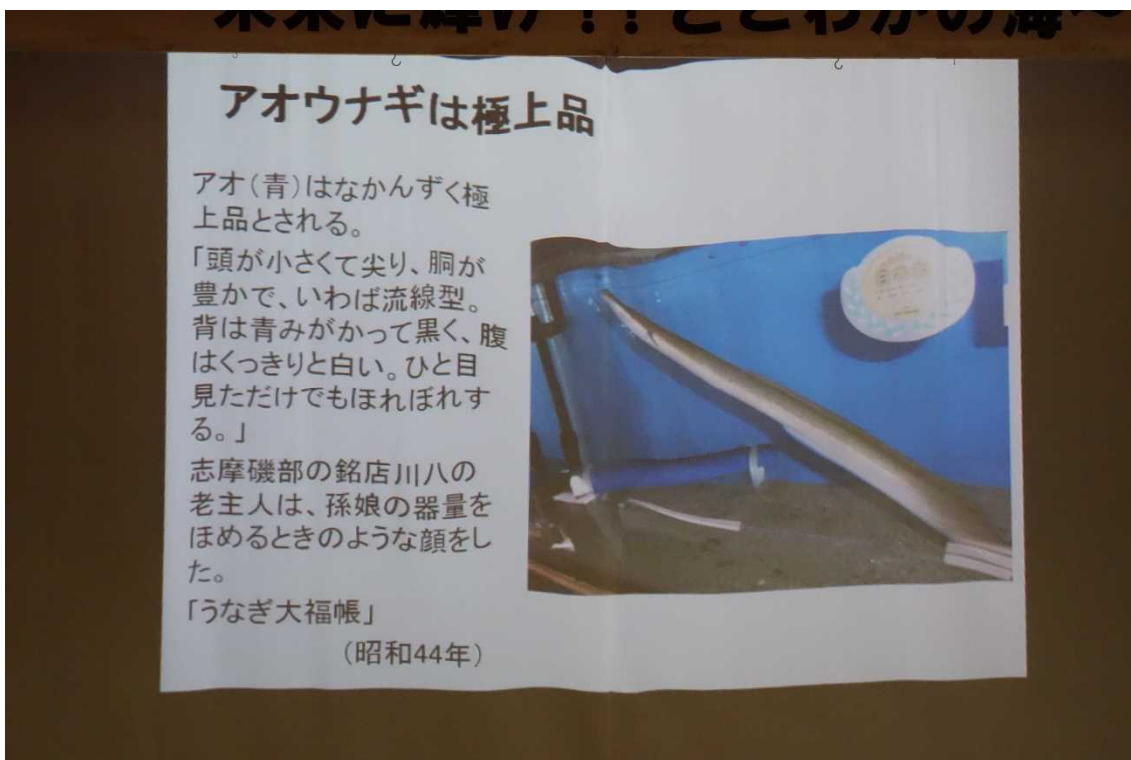 未来に輝け!! わかの海～
アオウナギは極上品
アオ(青)はなかんずく極
上品とされる。
「頭が小さくて尖り、胴が
豊かで、いわば流線型。
背は青みがかって黒く、腹
はくっきりと白い。ひと目
見ただけでもほれぼれす
る。」
志摩磯部の銘店川八の
老主人は、孫娘の器量を
ほめるときのような顔をし
た。
「うなぎ大福帳」
(昭和44年)